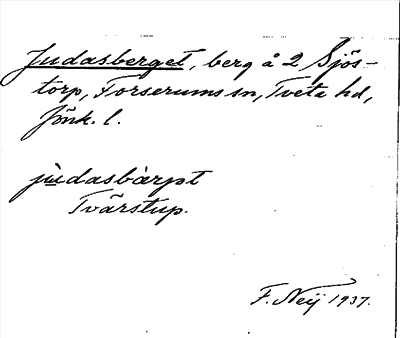 Judasberget, berg å 2 Sjös-
torp, Forserums sn, Tveta hd,
Jönk. l.
jùdasbàrjət
Tvärstup.
F. Neij 1937.